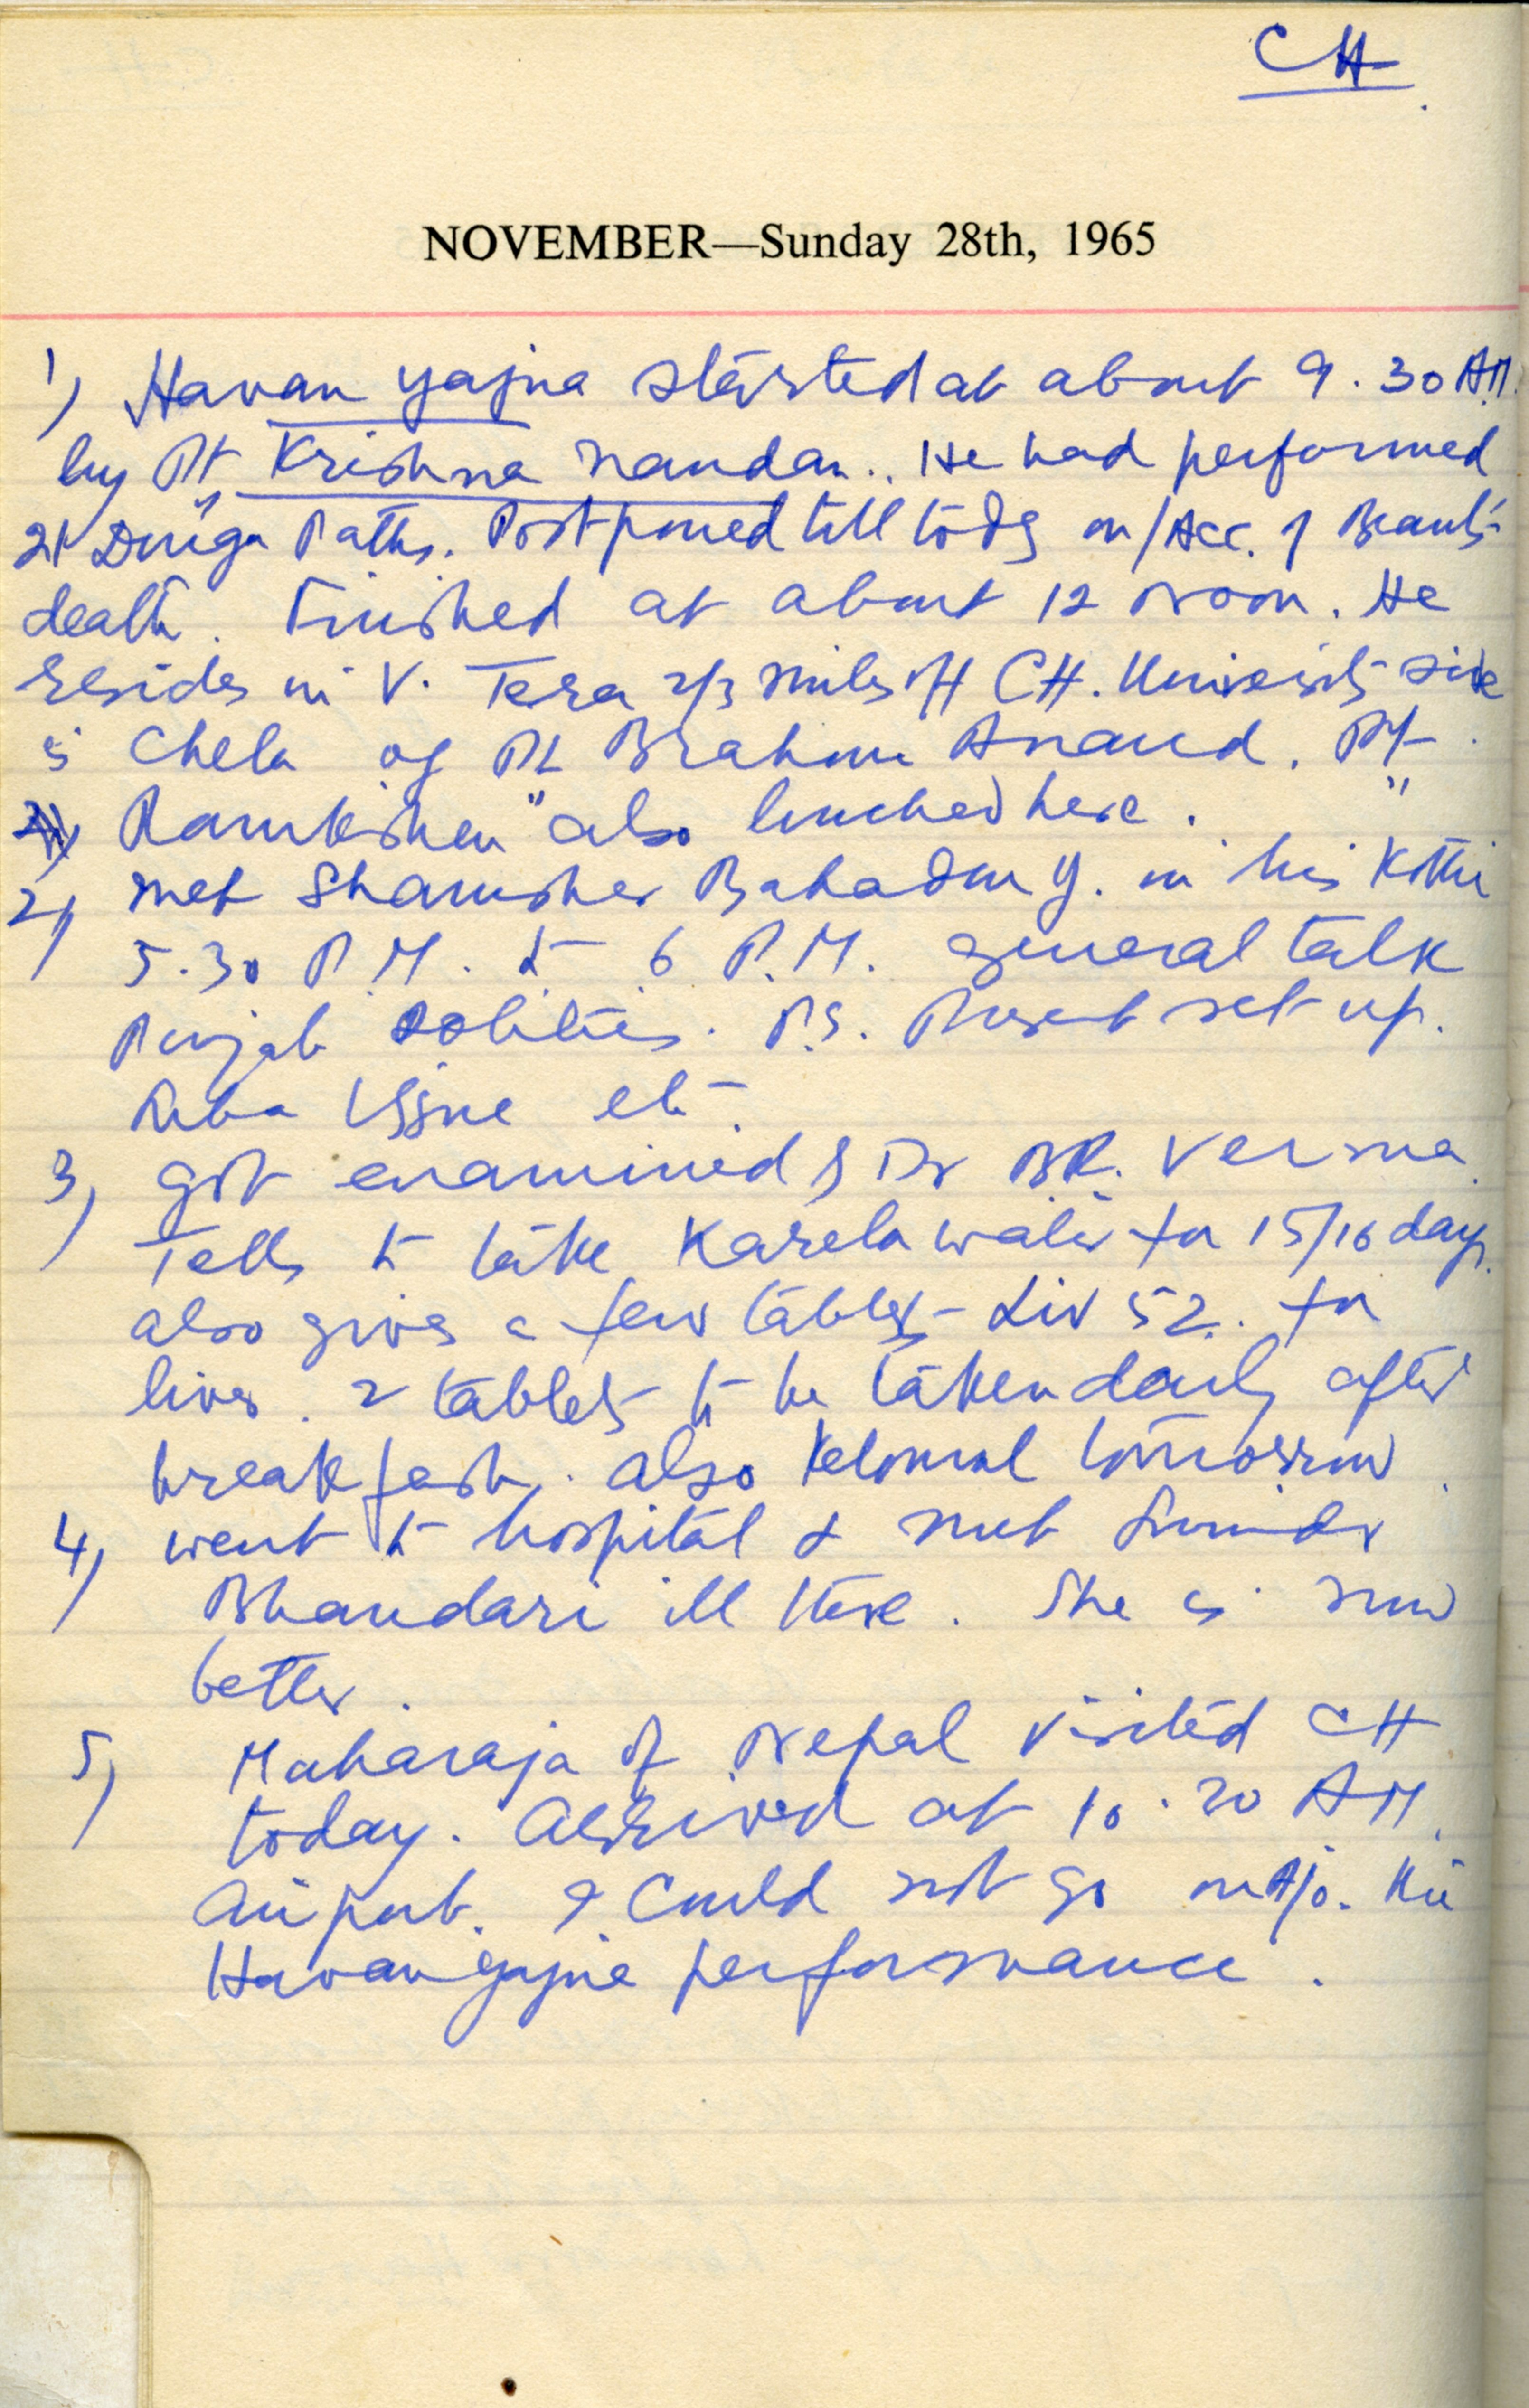 CH
NOVEMBER—Sunday 28th, 1965
1) Havan yajna started at about 9.30 A.M.
by Pt Krishna Nandan. He had performed
21 Durga Paths. Postponed till today on/Acc. of
death. Finished at about 12 Noon. He
resides in V. Tera 2/3 miles off CH. University side
is Chela of Pt Brahm Anand. Pt.
Ramkishen also lunched here.
2) met Shamsher Bahadur in his Kothi
5.30 P.M. to 6 P.M. general talk
Punjab Politics. P.S. Present set up.
etc
3) got examined by Dr BR. Verma.
Tells to take Karela water for 15/16 days.
also gives a few tablets - Liv 52. for
liver. 2 tablets to be taken daily after
breakfast. also tomorrow.
4) went to hospital & met
Bhandari ill there. She is now
better.
5) Maharaja of Nepal visited CH
today. Arrived at 10.20 AM.
Airport. I could not go on A/o. the
Havan yajna performance.